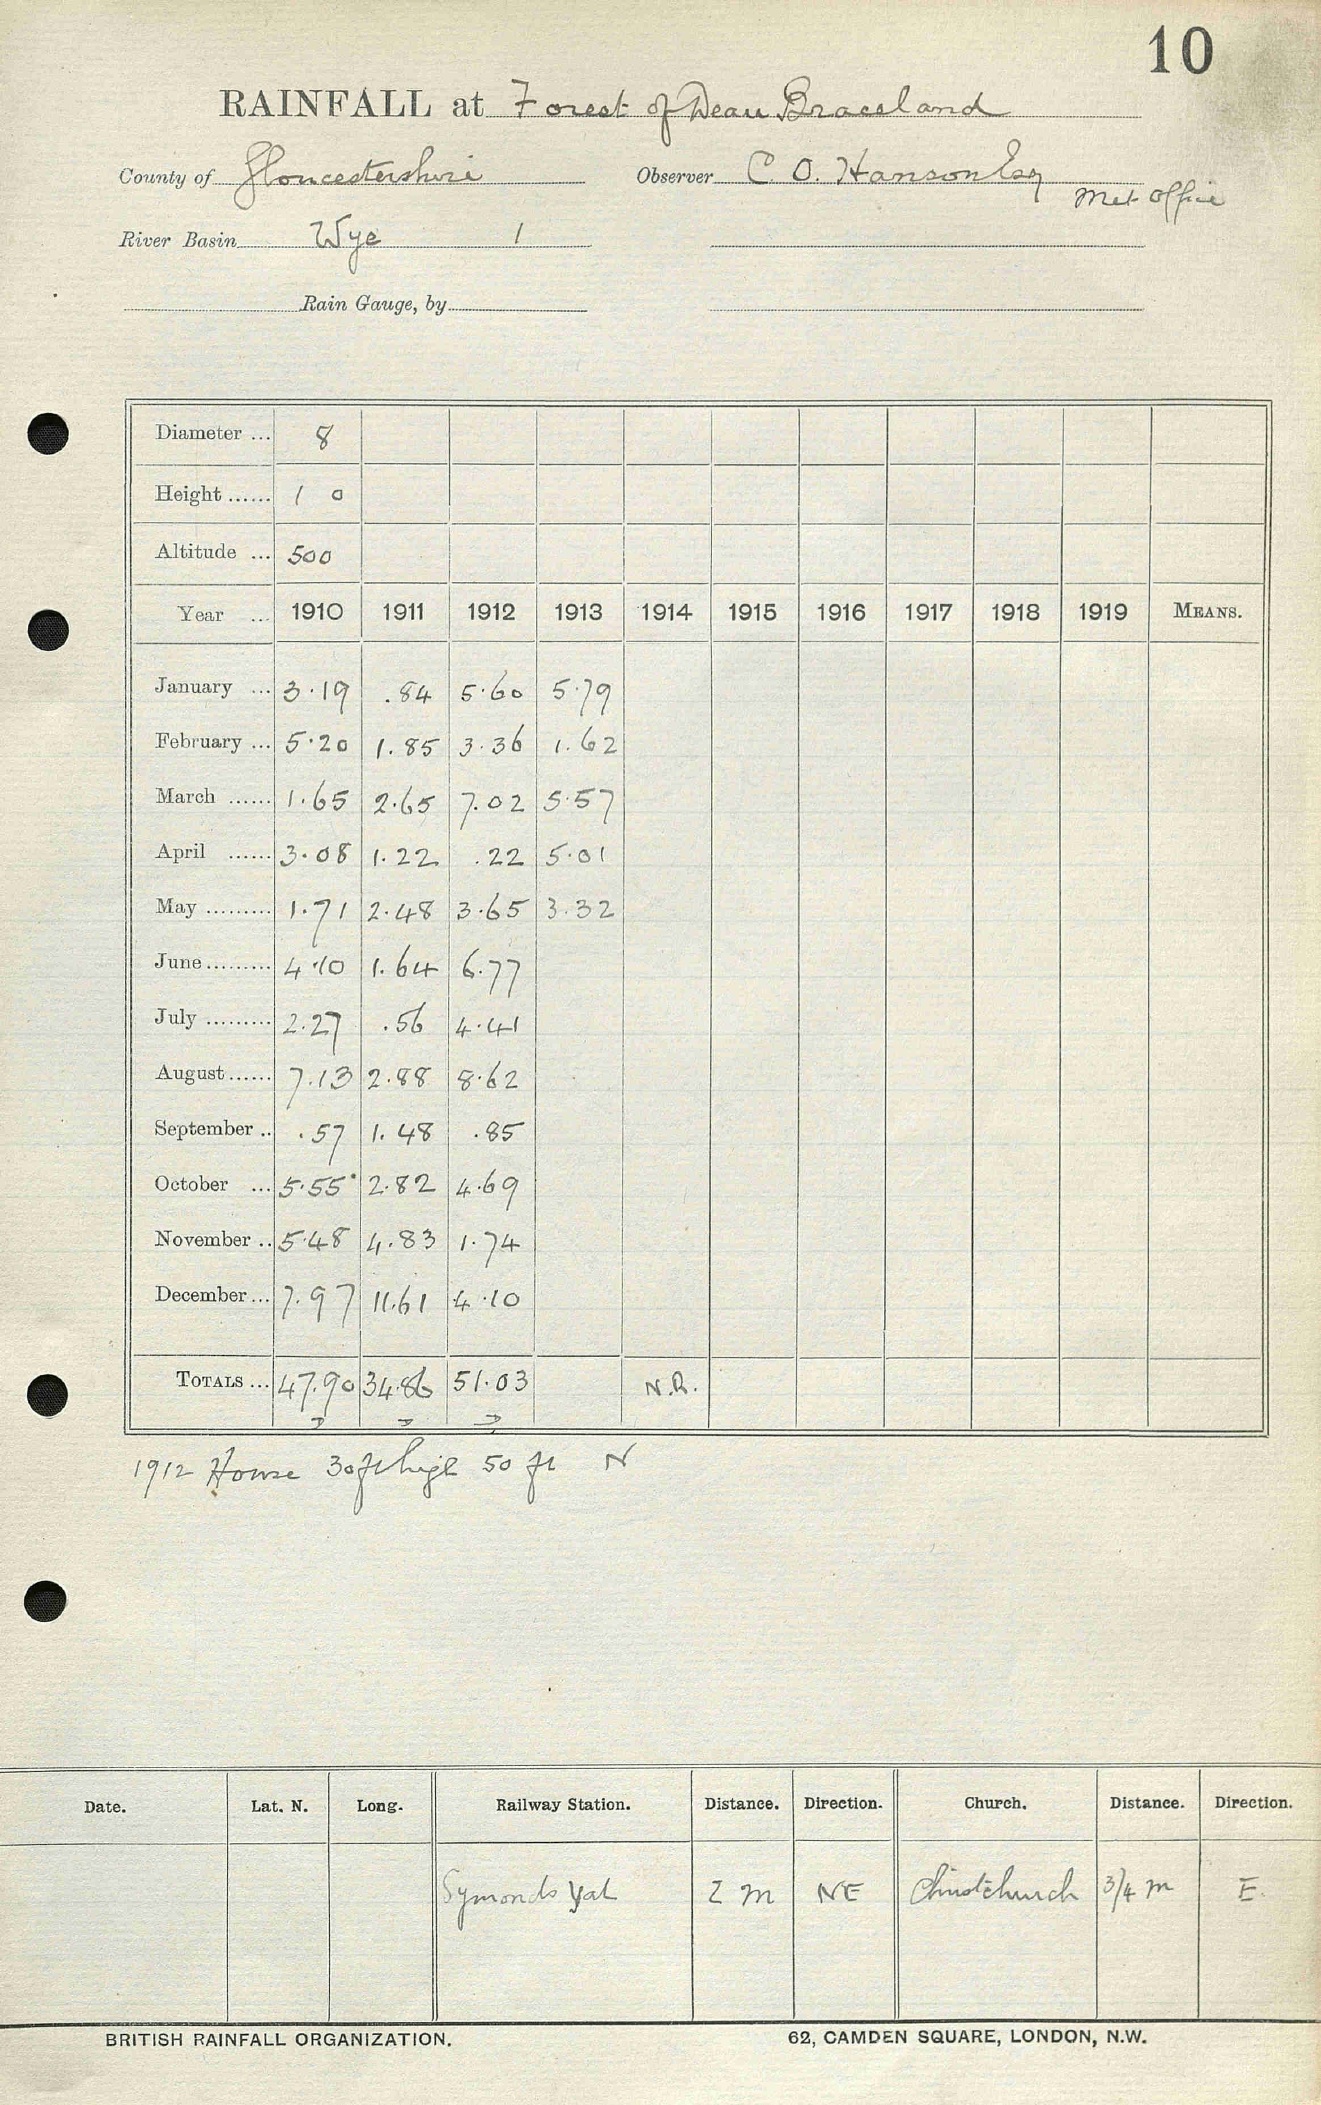 10
RAINFALL at Forest of Dean Braceland
County of Gloucestershire Observer C. O. Hanson Esq
Met Office
River Basin Wye 1
Rain Gauge, by
Diameter ... 8
Height ...... 1 0
Altitude ... 500
Year ... 1910 1911 1912 1913 1914 1915 1916 1917 1918 1919 MEANS.
January ... 3.19 .84 5.60 5.79
February ... 5.20 1.85 3.36 1.62
March ...... 1.65 2.65 7.02 5.57
April ...... 3.08 1.22 .22 5.01
May ......... 1.71 2.48 3.65 3.32
June ......... 4.10 1.64 6.77
July ......... 2.27 .56 4.41
August ...... 7.13 2.88 8.62
September .. .57 1.48 .85
October ... 5.55 2.82 4.69
November .. 5.48 4.83 1.74
December ... 7.97 11.61 4.10
TOTALS ... 47.90 34.86 51.03 N.R.
1912 House 30ft high 50 ft N
Date. Lat. N. Long. Railway Station. Distance. Direction. Church. Distance. Direction.
Symonds Yat 2 m NE Christchurch 3/4 m E.
BRITISH RAINFALL ORGANIZATION. 62, CAMDEN SQUARE, LONDON, N.W.